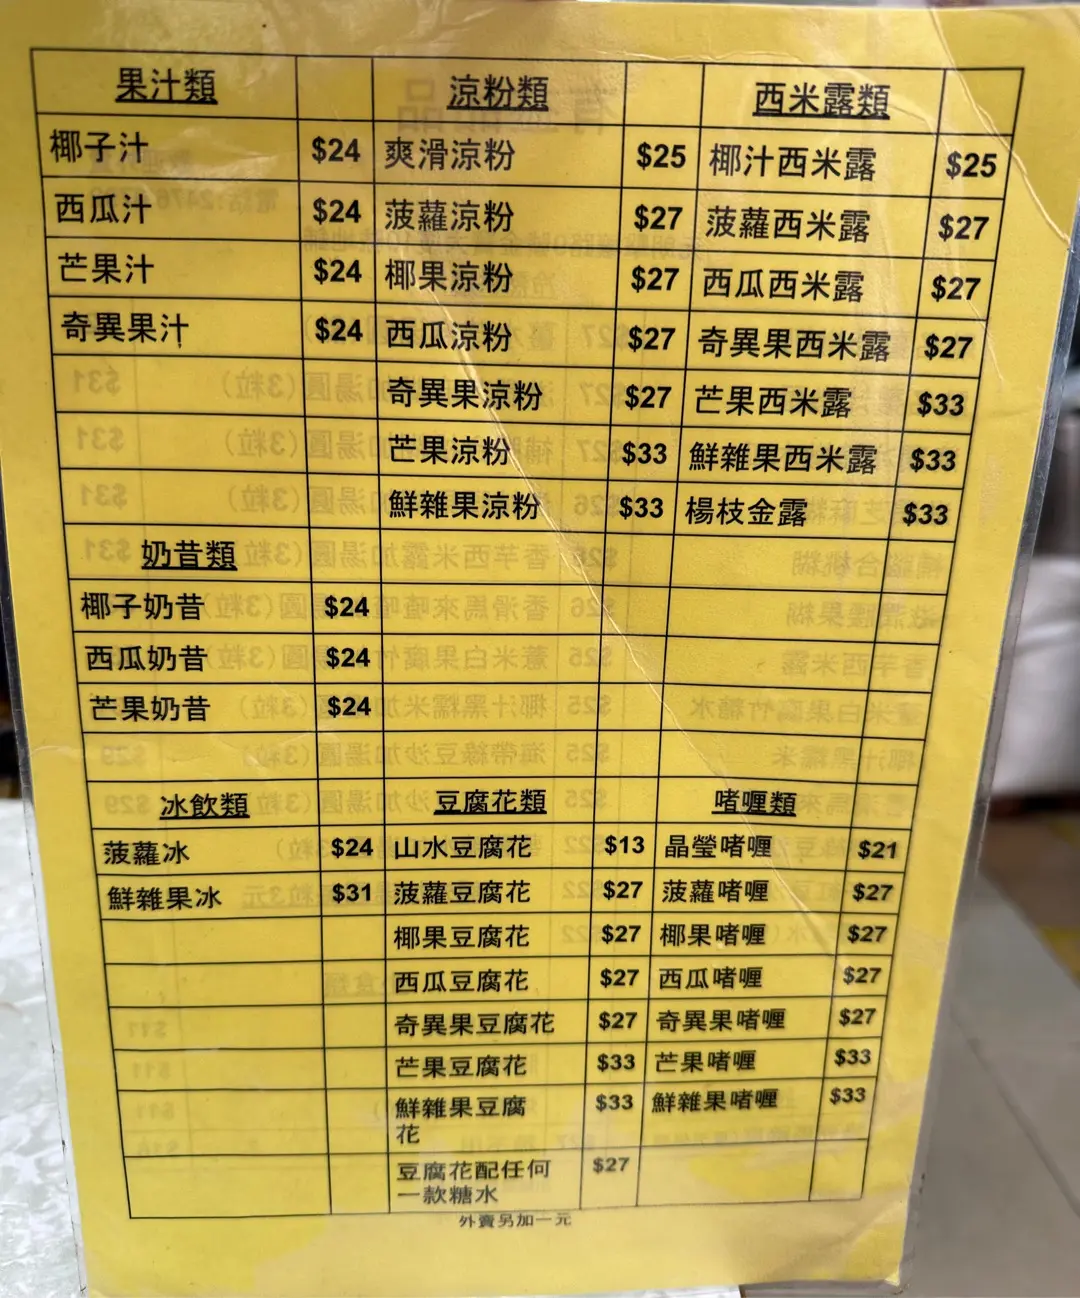 果汁類 涼粉類 西米露類
椰子汁 $24 爽滑涼粉 $25 椰汁西米露 $25
西瓜汁 $24 菠蘿涼粉 $27 菠蘿西米露 $27
芒果汁 $24 椰果涼粉 $27 西瓜西米露 $27
奇異果汁 $24 西瓜涼粉 $27 奇異果西米露 $27
奇異果涼粉 $27 芒果西米露 $33
芒果涼粉 $33 鮮雜果西米露 $33
鮮雜果涼粉 $33 楊枝金露 $33
奶昔類
椰子奶昔 $24
西瓜奶昔 $24
芒果奶昔 $24
冰飲類 豆腐花類 啫喱類
菠蘿冰 $24 山水豆腐花 $13 晶瑩啫喱 $21
鮮雜果冰 $31 菠蘿豆腐花 $27 菠蘿啫喱 $27
椰果豆腐花 $27 椰果啫喱 $27
西瓜豆腐花 $27 西瓜啫喱 $27
奇異果豆腐花 $27 奇異果啫喱 $27
芒果豆腐花 $33 芒果啫喱 $33
鮮雜果豆腐 $33 鮮雜果啫喱 $33
花
豆腐花配任何 $27
一款糖水
外賣另加一元